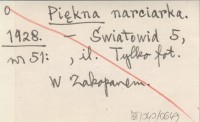 Piękna narciarka.
1928. - Światowid 5,
nr 51: , il. Tylko fot.
W Zakopanem.